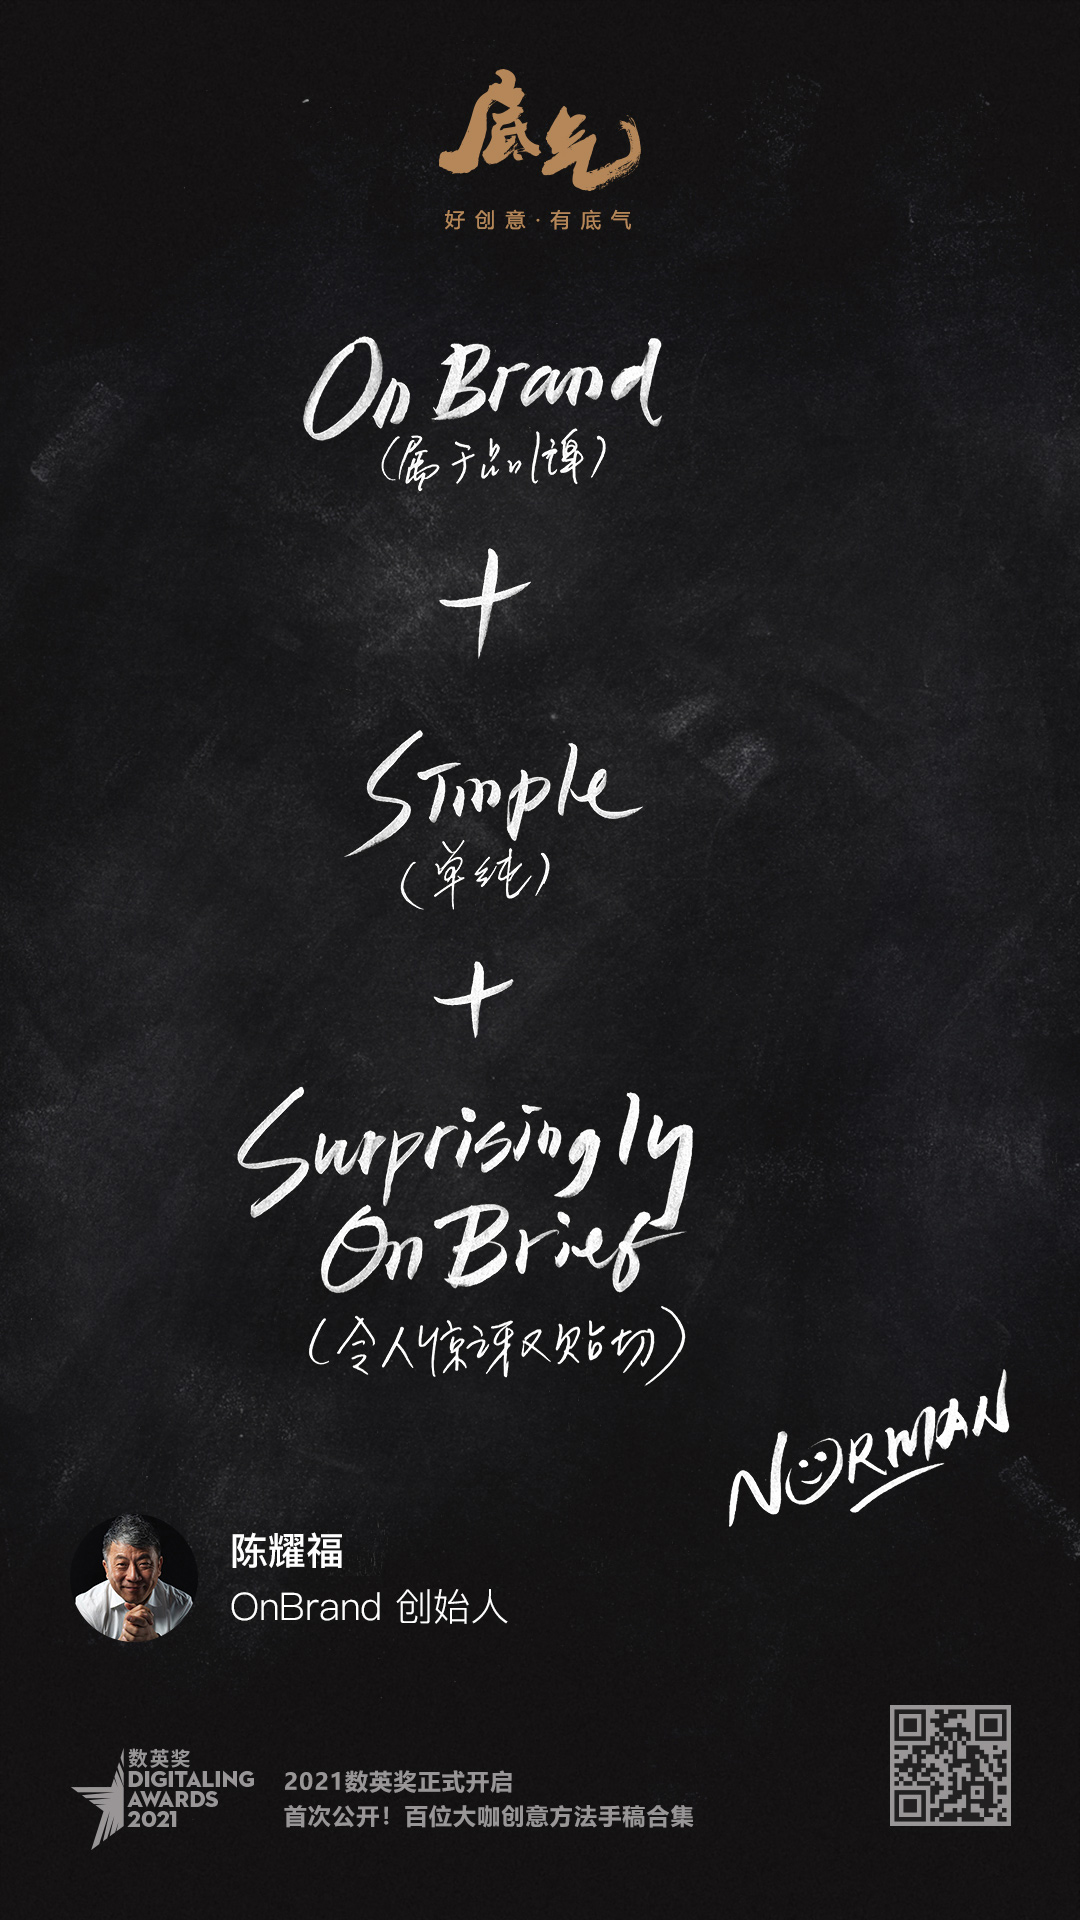 底气
好创意·有底气
On Brand
(属于品牌)
+
Simple
(单纯)
+
Surprisingly
On Brief
(令人惊讶又贴切)
NORMAN
陈耀福
OnBrand 创始人
数英奖
DIGITALING
AWARDS
2021
2021数英奖正式开启
首次公开！百位大咖创意方法手稿合集